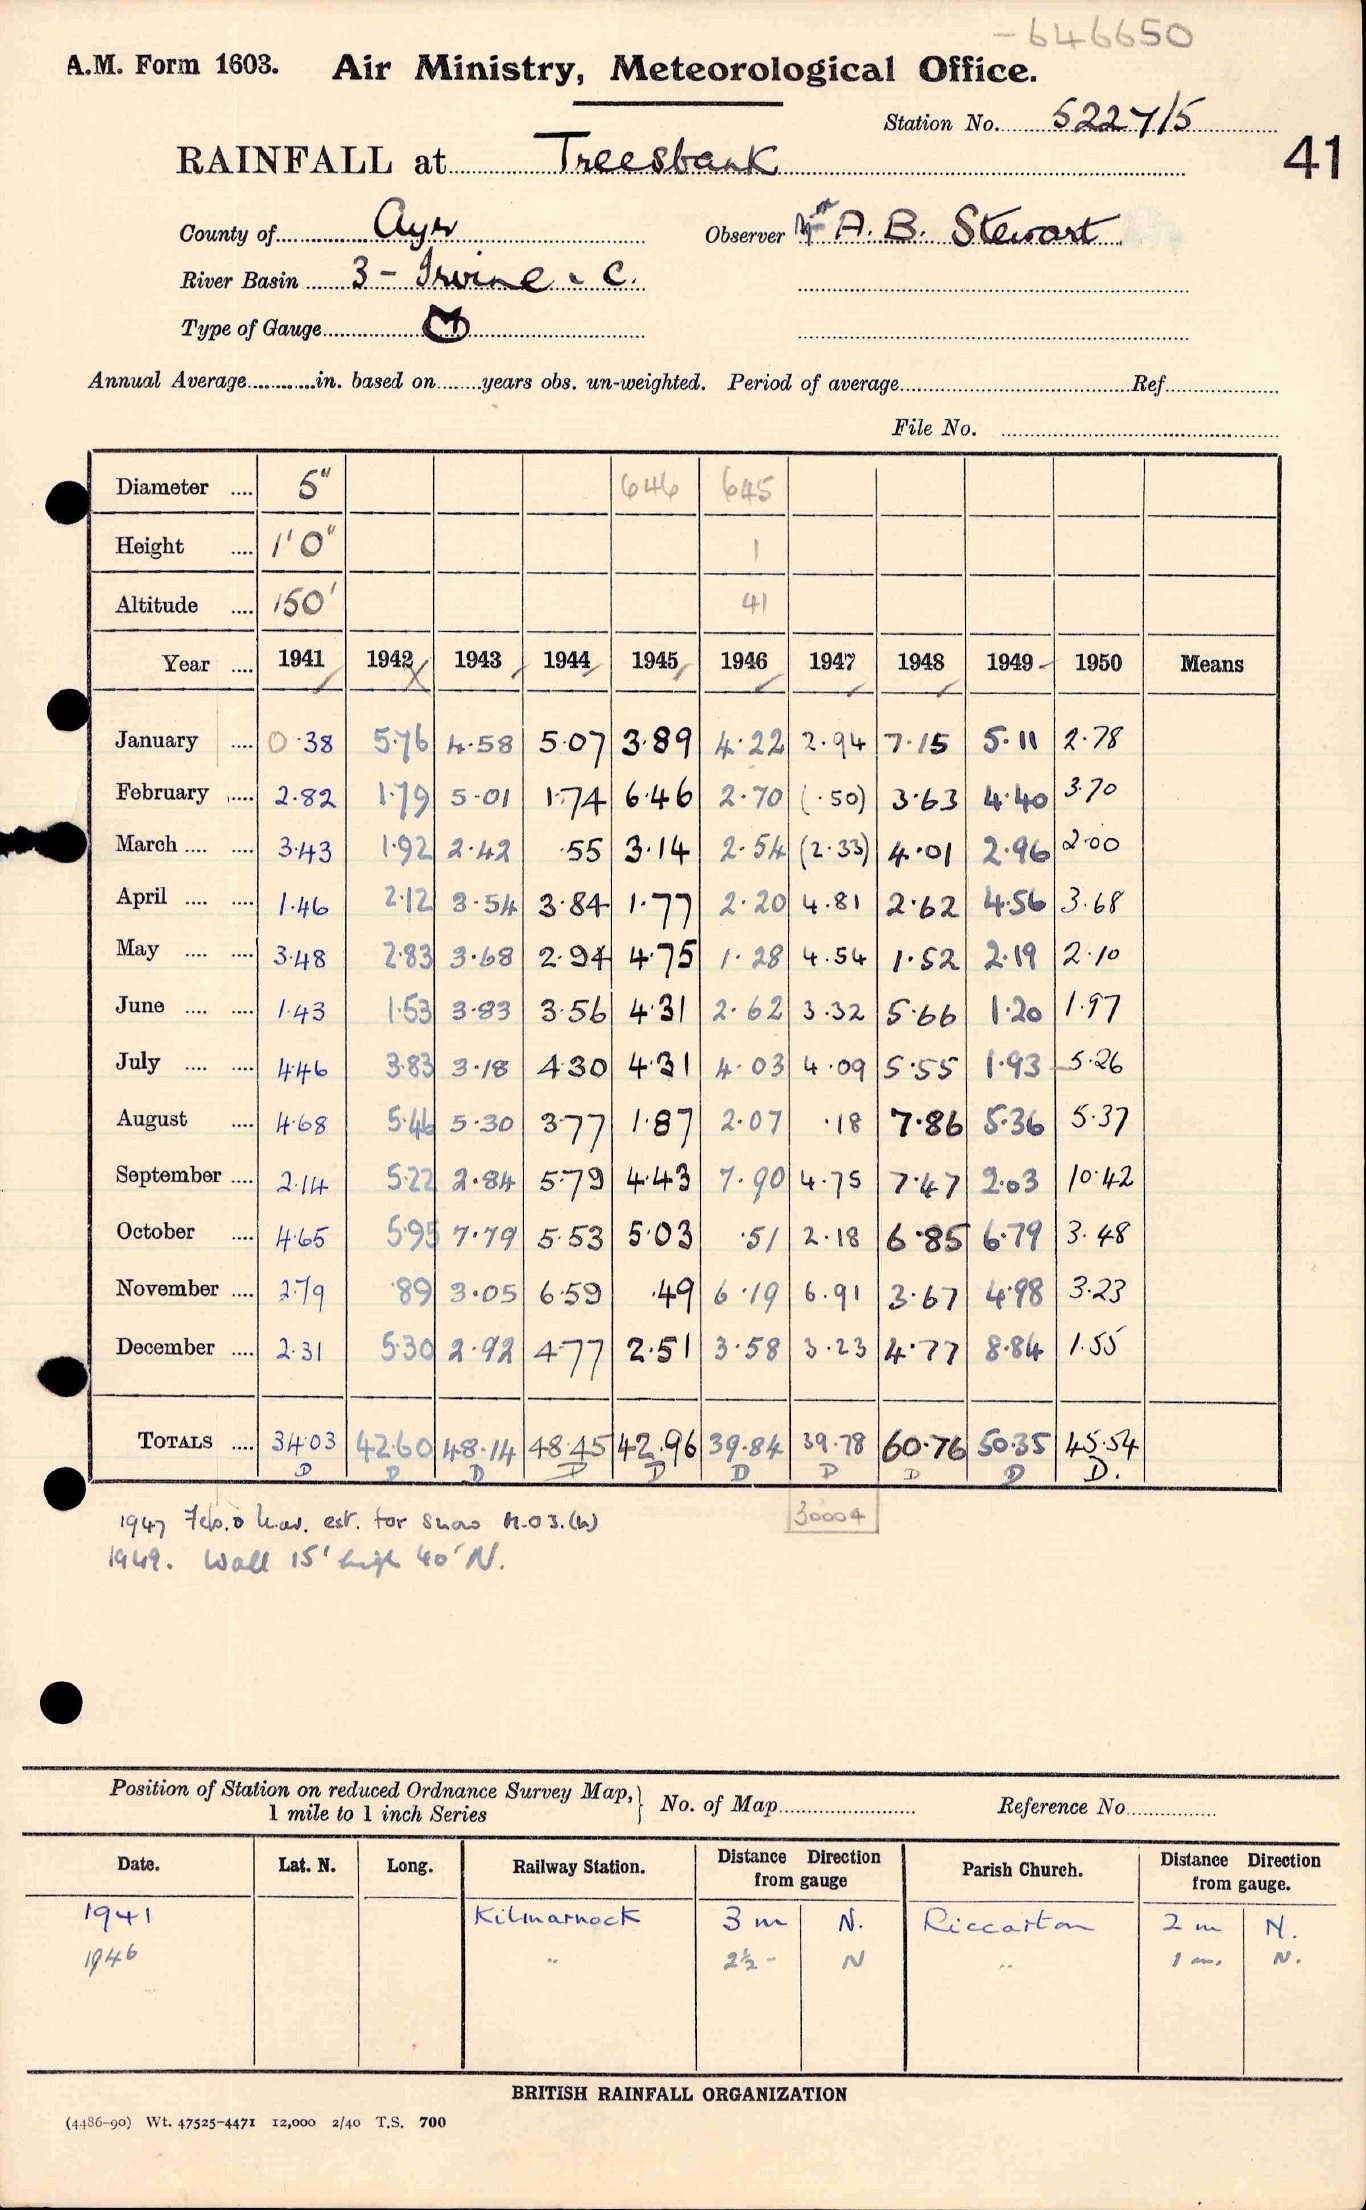 -646650
A.M. Form 1603. Air Ministry, Meteorological Office.
Station No. 5227/5
41
RAINFALL at Treesbank
County of Ayr Observer A. B. Stewart
River Basin 3 - Irvine & C.
Type of Gauge M
Annual Average in. based on years obs. un-weighted. Period of average Ref
File No.
Diameter 5" 646 645
Height 1'0" 1
Altitude 150' 41
Year 1941 1942 1943 1944 1945 1946 1947 1948 1949 1950 Means
January 0.38 5.76 4.58 5.07 3.89 4.22 2.94 7.15 5.11 2.78
February 2.82 1.79 5.01 1.74 6.46 2.70 (.50) 3.63 4.40 3.70
March 3.43 1.92 2.42 .55 3.14 2.54 (2.33) 4.01 2.96 2.00
April 1.46 2.12 3.54 3.84 1.77 2.20 4.81 2.62 4.56 3.68
May 3.48 2.83 3.68 2.94 4.75 1.28 4.54 1.52 2.19 2.10
June 1.43 1.53 3.83 3.56 4.31 2.62 3.32 5.66 1.20 1.97
July 4.46 3.83 3.18 4.30 4.31 4.03 4.09 5.55 1.93 5.26
August 4.68 5.46 5.30 3.77 1.87 2.07 .18 7.86 5.36 5.37
September 2.14 5.22 2.84 5.79 4.43 7.90 4.75 7.47 2.03 10.42
October 4.65 5.95 7.79 5.53 5.03 .51 2.18 6.85 6.79 3.48
November 2.79 .89 3.05 6.59 .49 6.19 6.91 3.67 4.98 3.23
December 2.31 5.30 2.92 4.77 2.51 3.58 3.23 4.77 8.84 1.55
TOTALS 34.03 42.60 48.14 48.45 42.96 39.84 39.78 60.76 50.35 45.54
D D D D D D D D D D.
1947 Feb. & Mar. est. for snow M.O3.(b) 30004
1949. Wall 15' high 40' N.
Position of Station on reduced Ordnance Survey Map, 1 mile to 1 inch Series } No. of Map Reference No.
Date. Lat. N. Long. Railway Station. Distance Direction from gauge Parish Church. Distance Direction from gauge.
1941 Kilmarnock 3 m N. Riccarton 2 m N.
1946 " 2½ - N " 1 m. N.
BRITISH RAINFALL ORGANIZATION
(4486-90) Wt. 47525-4471 12,000 2/40 T.S. 700